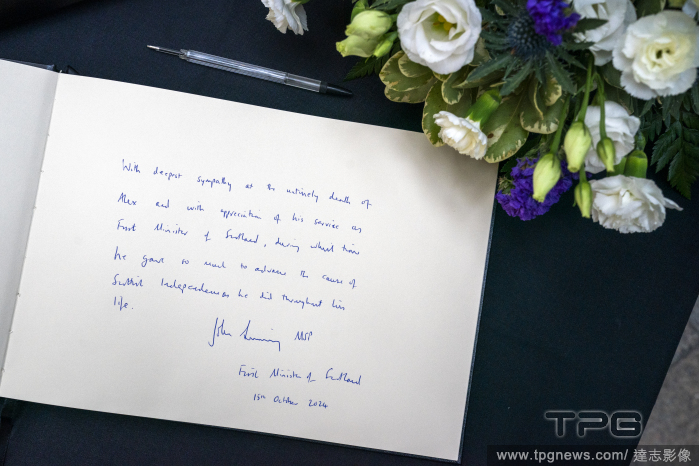 With deepest sympathy at the untimely death of
Alex and with appreciation of his service as
First Minister of Scotland, during which time
he gave so much to advance the cause of
Scottish Independence as he did throughout his
life.
John Swinney MSP
First Minister of Scotland
15th October 2024
TPG
www.tpgnews.com/ 達志影像